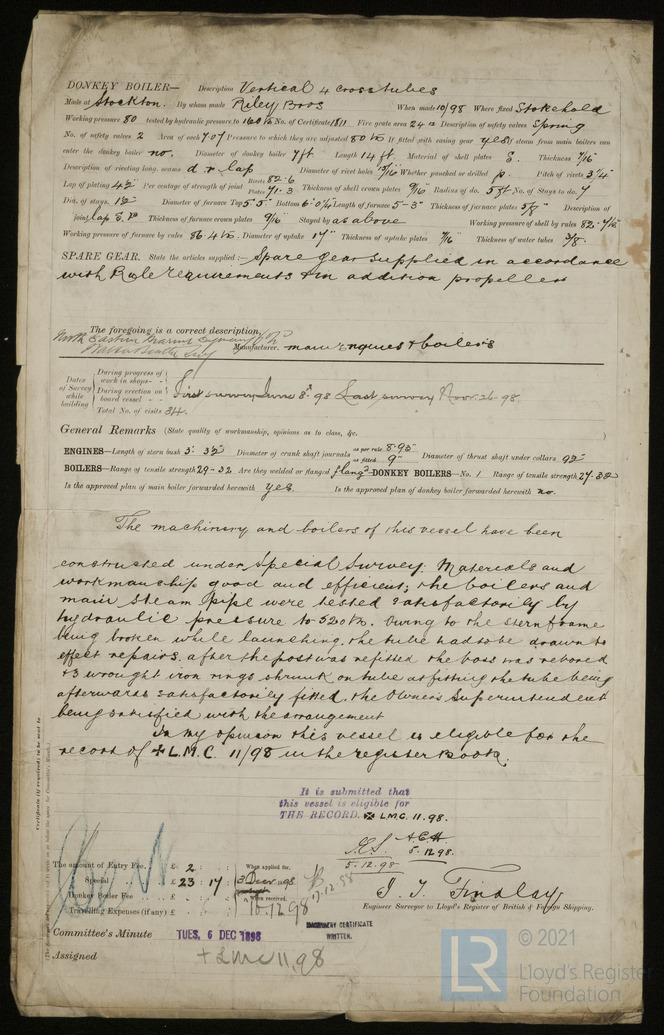 DONKEY BOILER— Description Vertical 4 crosstubes
Made at Stockton. By whom made Riley Bros When made 10/98 Where fixed Stokehold
Working pressure 80 tested by hydraulic pressure to 160 lbs No. of Certificate 1811 Fire grate area 24 Description of safety valves Spring
No. of safety valves 2 Area of each 7.07 Pressure to which they are adjusted 80 lbs If fitted with easing gear yes If steam from main boilers can
enter the donkey boiler no. Diameter of donkey boiler 7ft Length 14 ft Material of shell plates S. Thickness 7/16"
Description of riveting long. seams d. r. lap Diameter of rivet holes 13/16" Whether punched or drilled p. Pitch of rivets 3 1/4"
Lap of plating 4 1/2" Per centage of strength of joint Rivets 82.6 Plates 71.3 Thickness of shell crown plates 9/16" Radius of do. 5ft No. of Stays to do. 7
Dia. of stays. Diameter of furnace Top 5'5" Bottom 6'0 1/4" Length of furnace 5'-3" Thickness of furnace plates 5/8" Description of
joint lap Thickness of furnace crown plates 9/16" Stayed by as above Working pressure of shell by rules 82.
Working pressure of furnace by rules 86.4 lbs. Diameter of uptake 17" Thickness of uptake plates 7/16" Thickness of water tubes 3/8.
SPARE GEAR. State the articles supplied:— Spare gear supplied in accordance
with Rule requirements & in addition propeller
The foregoing is a correct description,
North Eastern Marine Engineering Co Ld
Manufacturer. main engines & boilers
Dates of Survey while building
During progress of work in shops - -
During erection on board vessel - - -
Total No. of visits 34.
First survey June 8th 98 Last survey Nov. 26. 98.
General Remarks (State quality of workmanship, opinions as to class, &c.
ENGINES—Length of stern bush 3' Diameter of crank shaft journals as per rule 8.95 as fitted 9" Diameter of thrust shaft under collars
BOILERS—Range of tensile strength 29-32 Are they welded or flanged flangd DONKEY BOILERS—No. 1 Range of tensile strength 27-32
Is the approved plan of main boiler forwarded herewith yes Is the approved plan of donkey boiler forwarded herewith no.
The machinery and boilers of this vessel have been
constructed under Special Survey. Materials and
workmanship good and efficient; the boilers and
main steam pipe were tested satisfactorily by
hydraulic pressure to 320 lbs. Owing to the sternframe
being broken while launching, the tube had to be drawn to
effect repairs. after the post was refitted the boss was rebored
& 3 wrought iron rings shrunk on tube as fitting the tube being
afterwards satisfactorily fitted. the Owners Superintendent
being satisfied with the arrangement
In my opinion this vessel is eligible for the
record of ✠ L.M.C. 11/98 in the register Book.
It is submitted that
this vessel is eligible for
THE RECORD. ✠ LMC. 11.98.
A.C.H.
5.12.98.
5.12.98
Certificate (if required) to be sent to
The amount of Entry Fee. . £ 2 : : When applied for,
Special . . . . £ 23 : 17 : 3 Decr 98
Donkey Boiler Fee . . . £ : : When received,
Travelling Expenses (if any) £ : : 10.12.98
J. T. Findlay
Engineer Surveyor to Lloyd's Register of British & Foreign Shipping.
MACHINERY CERTIFICATE
WRITTEN.
Committee's Minute TUES. 6 DEC 1898
Assigned + LMC 11,98
LR
© 2021
Lloyd's Register
Foundation